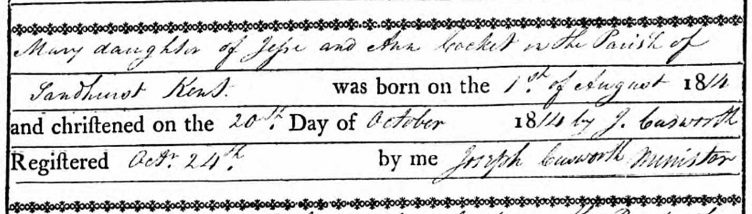 Mary daughter of Jesse and Ann Cocket in the Parish of
Sandhurst Kent. was born on the 1st. of August 1814
and chriſtened on the 20th. Day of October 1814 by J. Cusworth
Registered Octr. 24th. by me Joseph Cusworth Minister